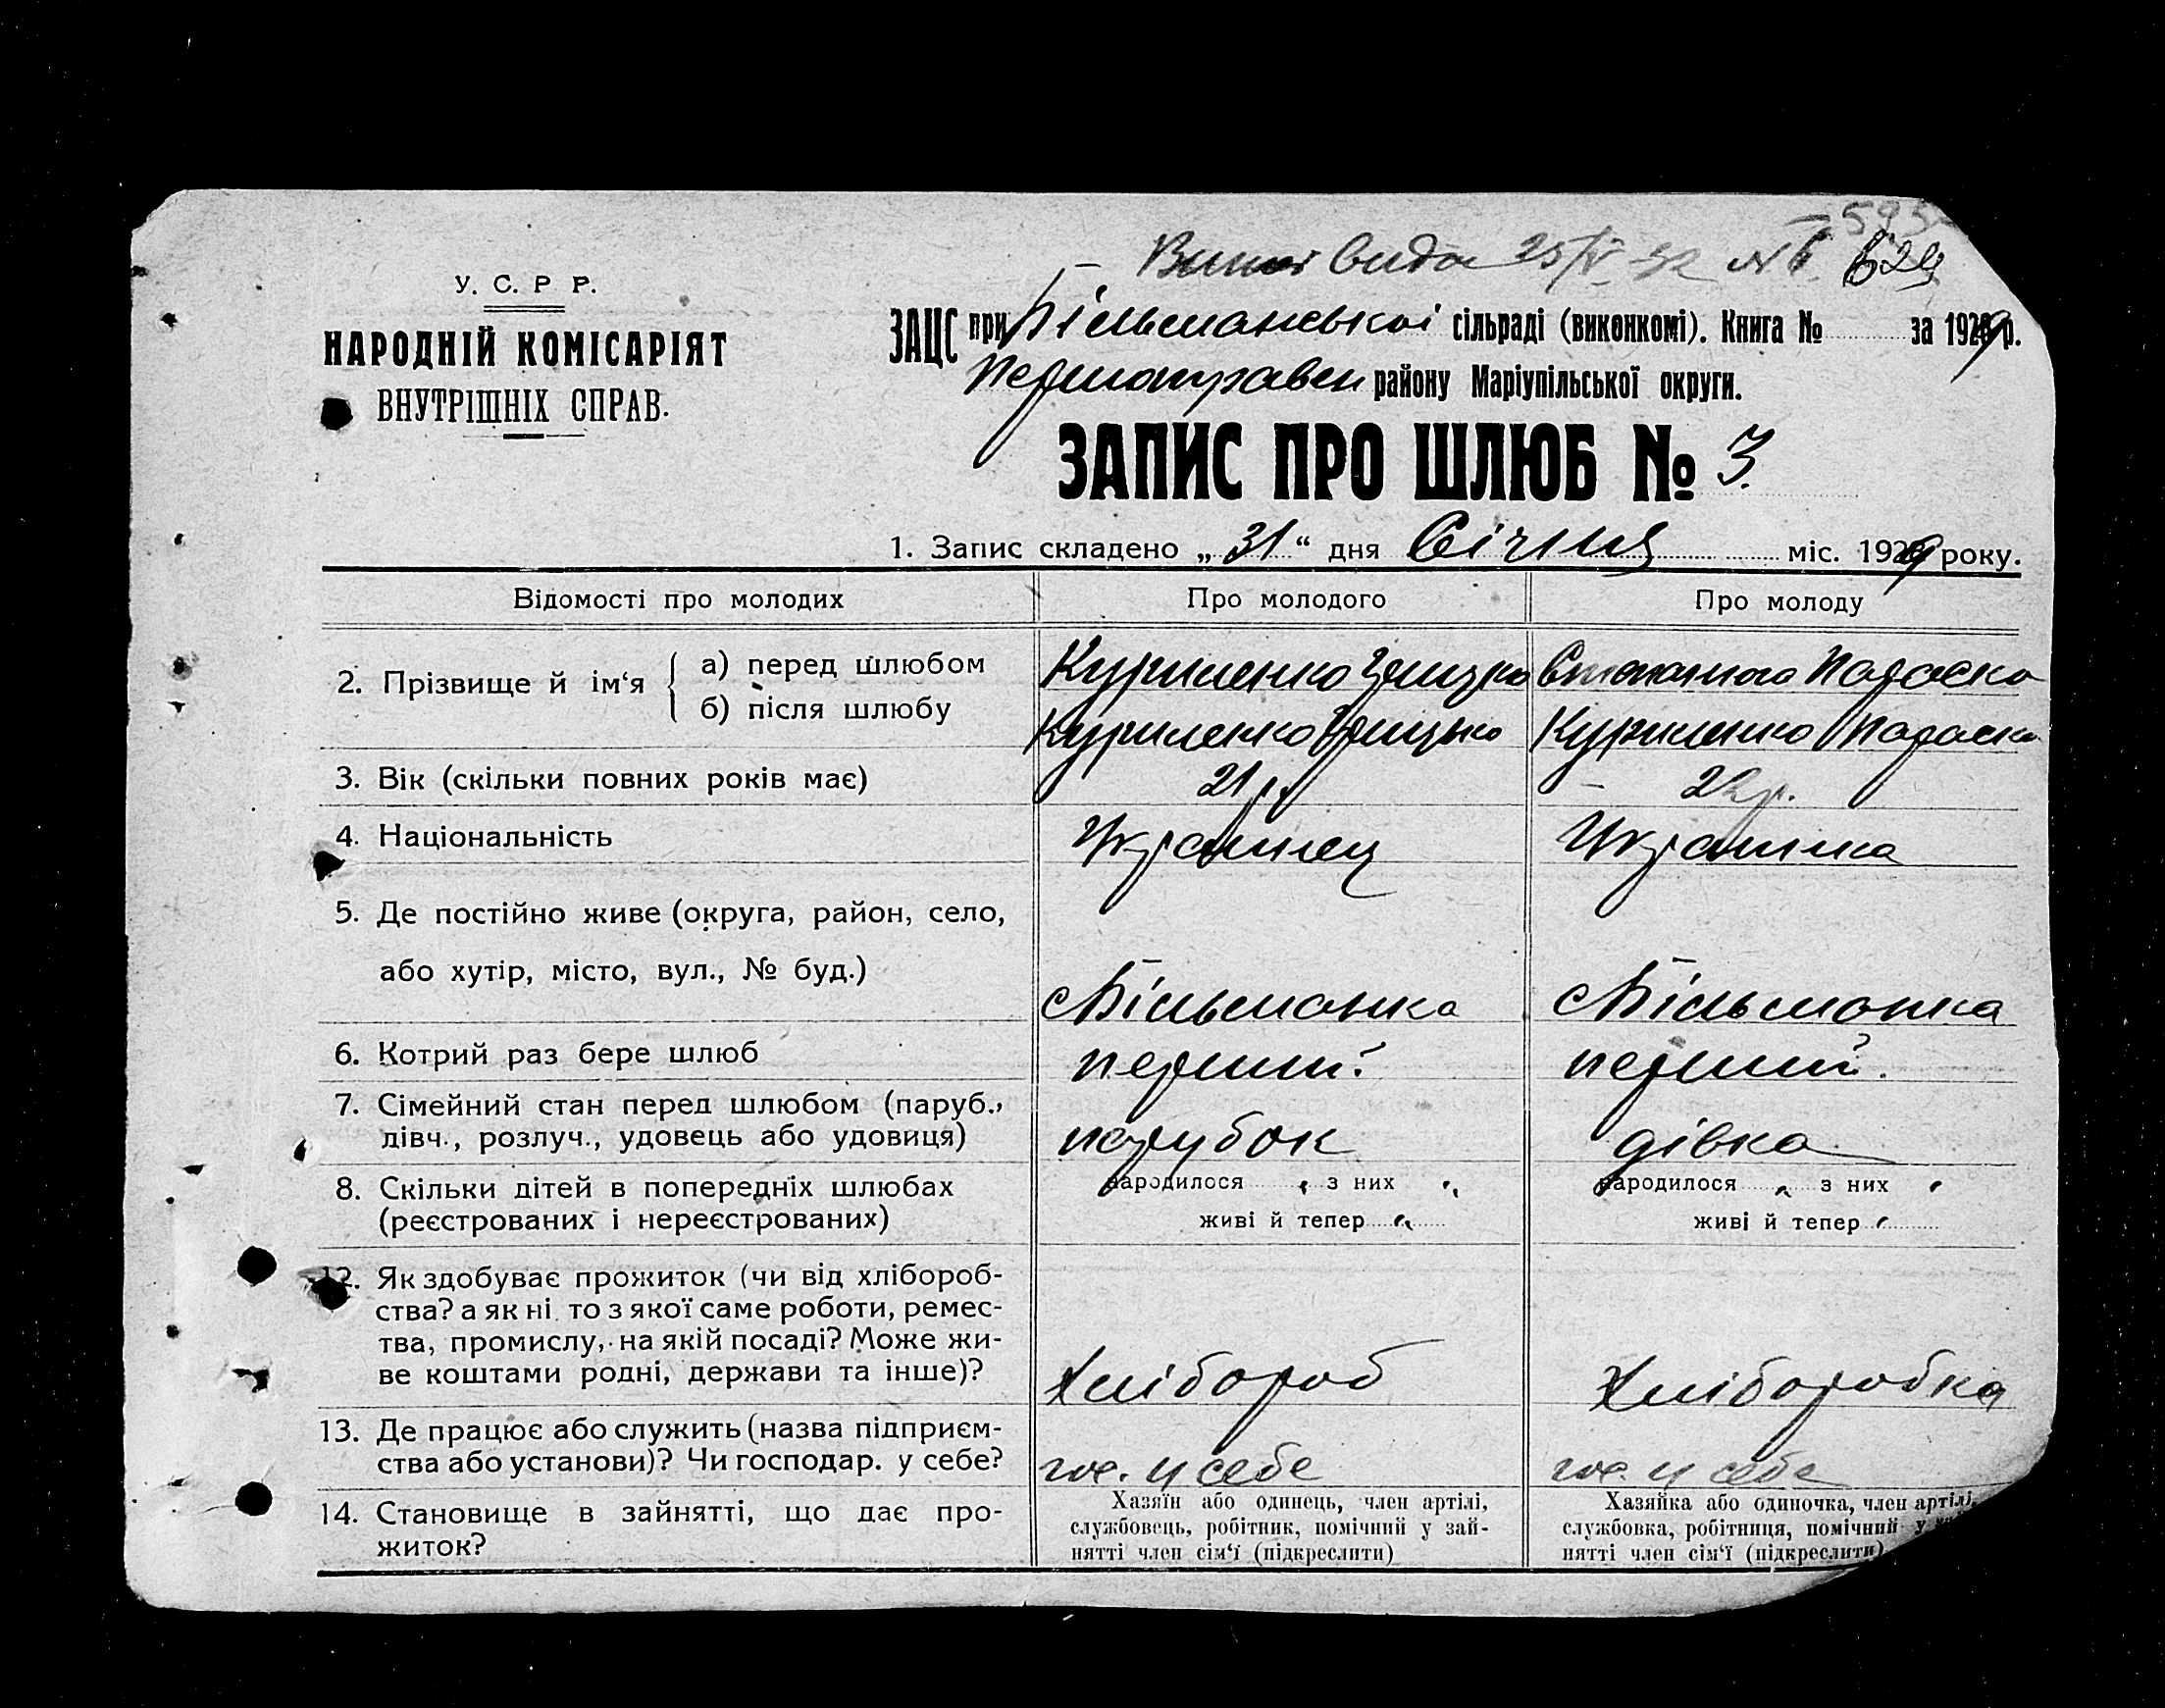 595
Вида 25/IV-32 № 629
У. С. Р Р.
НАРОДНІЙ КОМІСАРІЯТ
ВНУТРІШНІХ СПРАВ.
ЗАЦС при Більманської сільраді (виконкомі). Книга № за 1929 р.
Першоправен району Маріупільської округи.
ЗАПИС ПРО ШЛЮБ № 3.
1. Запис складено „31“ дня Січня міс. 1929 року.
Відомості про молодих Про молодого Про молоду
2. Прізвище й ім‘я
а) перед шлюбом Куриленко Грицко Параска
б) після шлюбу Куриленко Грицько Куриленко Параска
3. Вік (скільки повних років має) 21 р. 22 р.
4. Національність Українец Украинка
5. Де постійно живе (округа, район, село,
або хутір, місто, вул., № буд.) с Більманка с Більманка
6. Котрий раз бере шлюб перший. перший.
7. Сімейний стан перед шлюбом (паруб.,
дівч., розлуч., удовець або удовиця) парубок дівка
8. Скільки дітей в попередніх шлюбах народилося з них народилося з них
(реєстрованих і нереєстрованих) живі й тепер живі й тепер
12. Як здобуває прожиток (чи від хлібороб-
ства? а як ні то з якої саме роботи, ремес-
тва, промислу, на якій посаді? Може жи-
ве коштами родні, держави та інше)? Хлібороб Хліборобка
13. Де працює або служить (назва підприєм-
ства або установи)? Чи господар. у себе? гос. у себе гос. у себе
14. Становище в зайнятті, що дає про-
житок?
Хазяїн або одинець, член артілі,
службовець, робітник, помічний у зай-
нятті член сім‘ї (підкреслити)
Хазяйка або одиночка, член артілі,
службовка, робітниця, помічний у
нятті член сім‘ї (підкреслити)